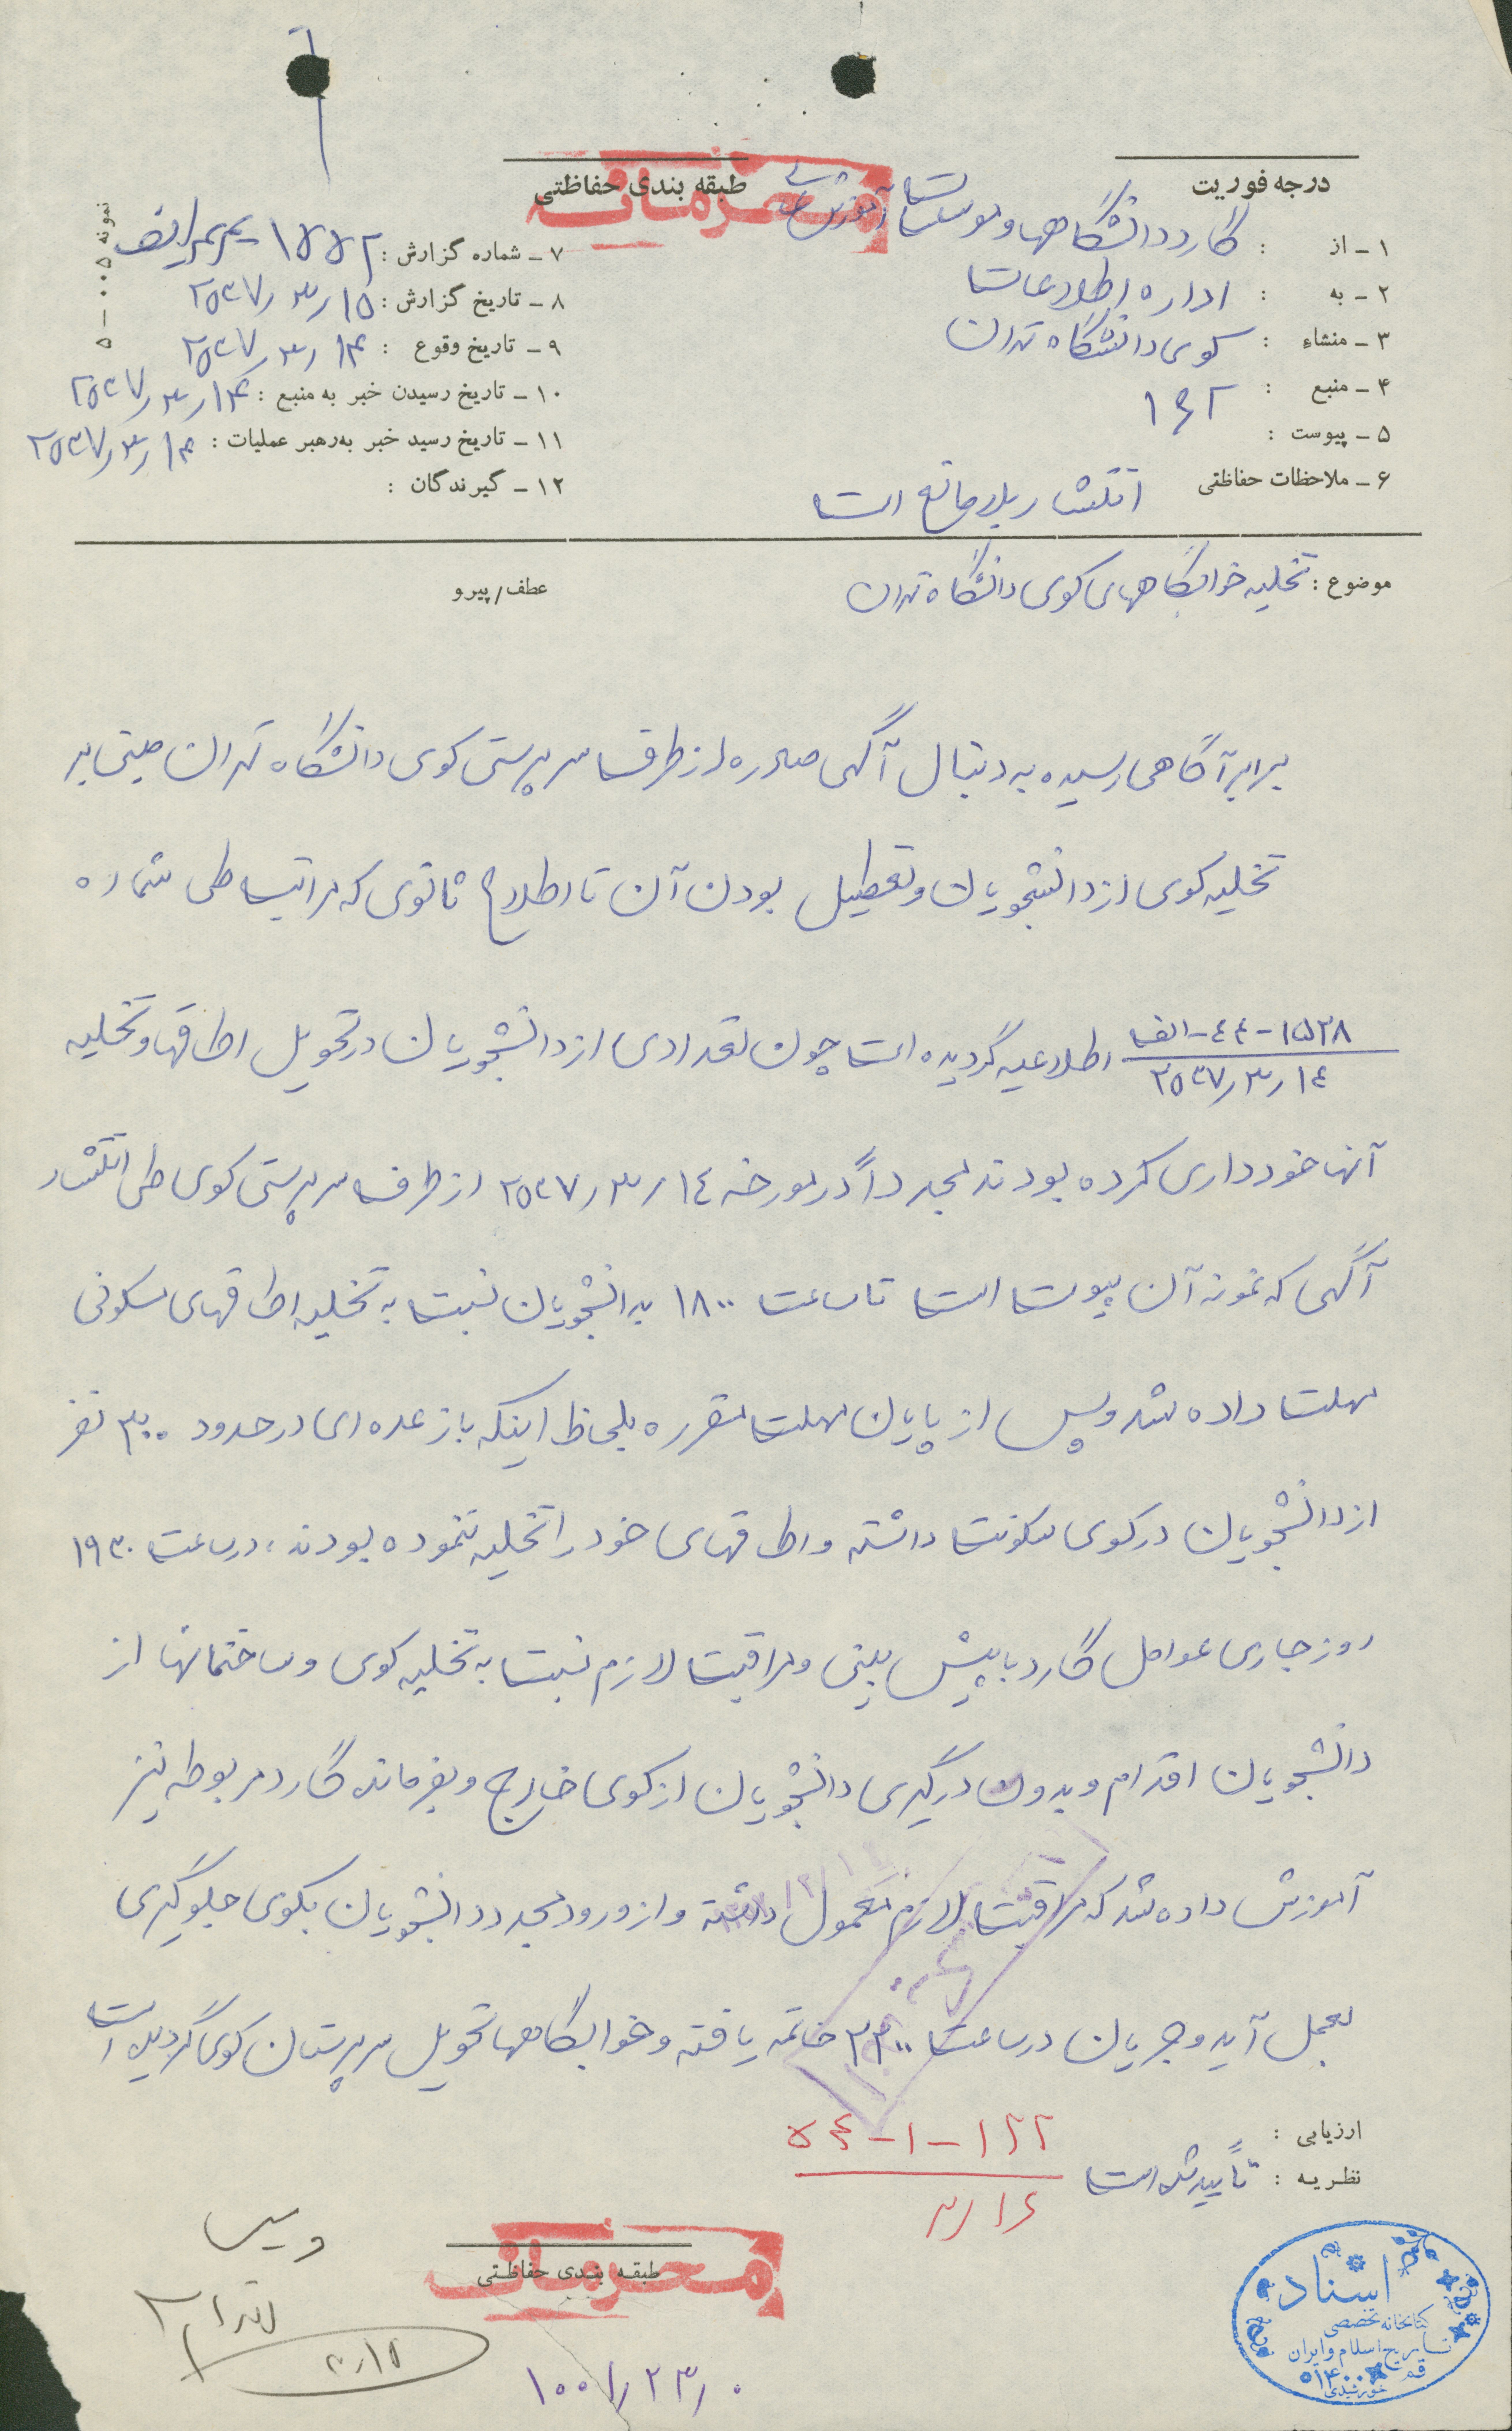 درجه فوریت
طبقه بندی حفاظتی
محرمانه
۱ - از : گارد دانشگاهها و موسسات آموزشی
۲ - به : اداره اطلاعات
۳ - منشاء : کوی دانشگاه تهران
۴ - منبع : ۱۶۲
۵ - پیوست :
۶ - ملاحظات حفاظتی انتشار بلامانع است
۷ - شماره گزارش : ۱۵۵۲
۸ - تاریخ گزارش : ۲۵۳۷٫۳٫۱۵
۹ - تاریخ وقوع : ۲۵۳۷٫۳٫۱۴
۱۰ - تاریخ رسیدن خبر به منبع : ۲۵۳۷٫۳٫۱۴
۱۱ - تاریخ رسید خبر به رهبر عملیات : ۲۵۳۷٫۳٫۱۴
۱۲ - گیرندگان :
نمونه ۰۰۵-۵
موضوع : تخلیه خوابگاههای کوی دانشگاه تهران
عطف/پیرو
برابر آگاهی رسیده به دنبال آگهی صادره از طرف سرپرستی کوی دانشگاه تهران مبنی بر
تخلیه کوی از دانشجویان و تعطیل بودن آن تا اطلاع ثانوی که مراتب طی شماره
۱۵۲۸-۴۴-الف
۲۵۳۷٫۳٫۱٤
اطلاعیه گردیده است چون تعدادی از دانشجویان در تحویل اطاقها و تخلیه
آنها خودداری کرده بودند مجدداً در مورخه ۲۵۳۷٫۳٫۱٤ از طرف سرپرستی کوی طی انتشار
آگهی که نمونه آن پیوست است تا ساعت ۱۸۰۰ به دانشجویان نسبت به تخلیه اطاقهای سکونی
مهلت داده شد و پس از پایان مهلت مقرره بلحاظ اینکه باز عده ای در حدود ۳۰۰ نفر
از دانشجویان در کوی سکونت داشته و اطاقهای خود را تخلیه ننموده بودند، در ساعت ۱۹۳۰
روز جاری عوامل گارد با پیش بینی و مراقبت لازم نسبت به تخلیه کوی و ساختمانها از
دانشجویان اقدام و بدون درگیری دانشجویان از کوی خارج و بفرمانده گارد مربوطه نیز
آموزش داده شد که مراقبت لازم معمول داشته و از ورود مجدد دانشجویان بکوی جلوگیری
بعمل آید و جریان در ساعت ۲۳۰۰ خاتمه یافته و خوابگاهها تحویل سرپرستان کوی گردیده است
ارزیابی :
نظریه : تأیید شده است
۱۲۲-۱-۵۴
۳٫۱۶
طبقه بندی حفاظتی
محرمانه
۳٫۱۵
اسناد
کتابخانه تخصصی
تاریخ اسلام و ایران
قم